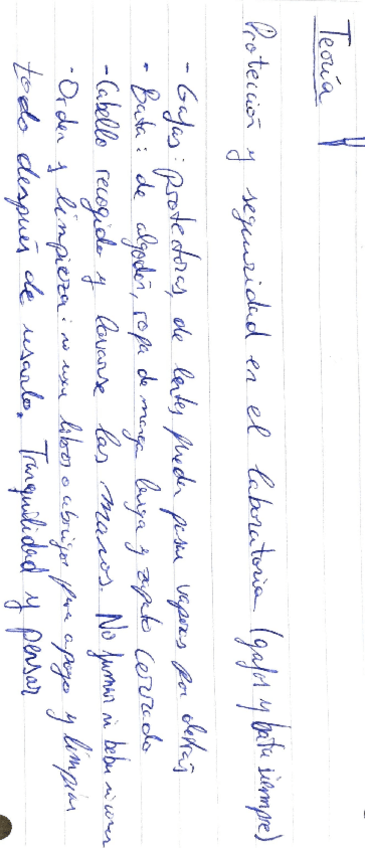 Teoría
Protección y seguridad en el laboratorio (gafas y bata siempre)
- Gafas: Protectoras, de lentes puede pasar vapores por detrás
- Bata: de algodón, ropa de manga larga y zapato cerrado
- Cabello recogido y lavarse las manos. No fumar ni beber ni comer
- Orden y limpieza: no usar libros o abrigos para apoyo y limpiar
todo después de usarlo. Tranquilidad y pensar